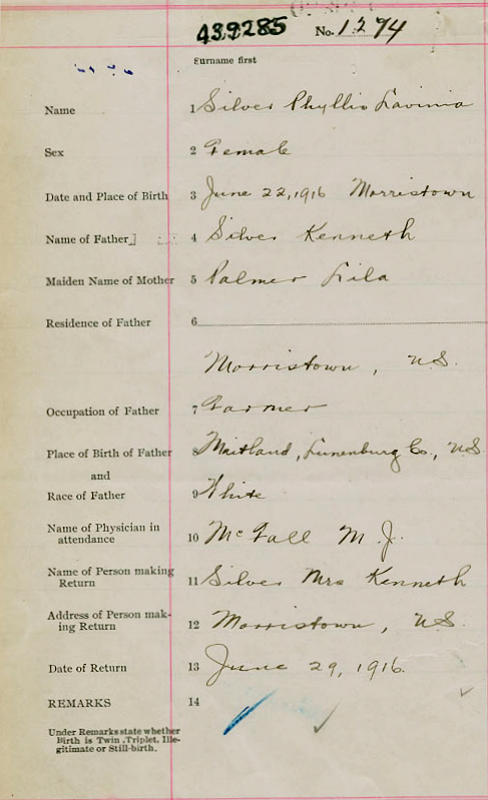 439285 No. 1274
Surname first
Name 1 Silver Phyllis Lavinia
Sex 2 Female
Date and Place of Birth 3 June 22, 1916 Morristown
Name of Father 4 Silver Kenneth
Maiden Name of Mother 5 Palmer Lila
Residence of Father 6
Morristown, N.S.
Occupation of Father 7 Farmer
Place of Birth of Father 8 Maitland, Lunenburg Co., N.S.
and
Race of Father 9 White
Name of Physician in
attendance 10 McFall M. J.
Name of Person making
Return 11 Silver Mrs Kenneth
Address of Person mak-
ing Return 12 Morristown, N.S.
Date of Return 13 June 29, 1916.
REMARKS 14
Under Remarks state whether
Birth is Twin, Triplet, Ille-
gitimate or Still-birth.